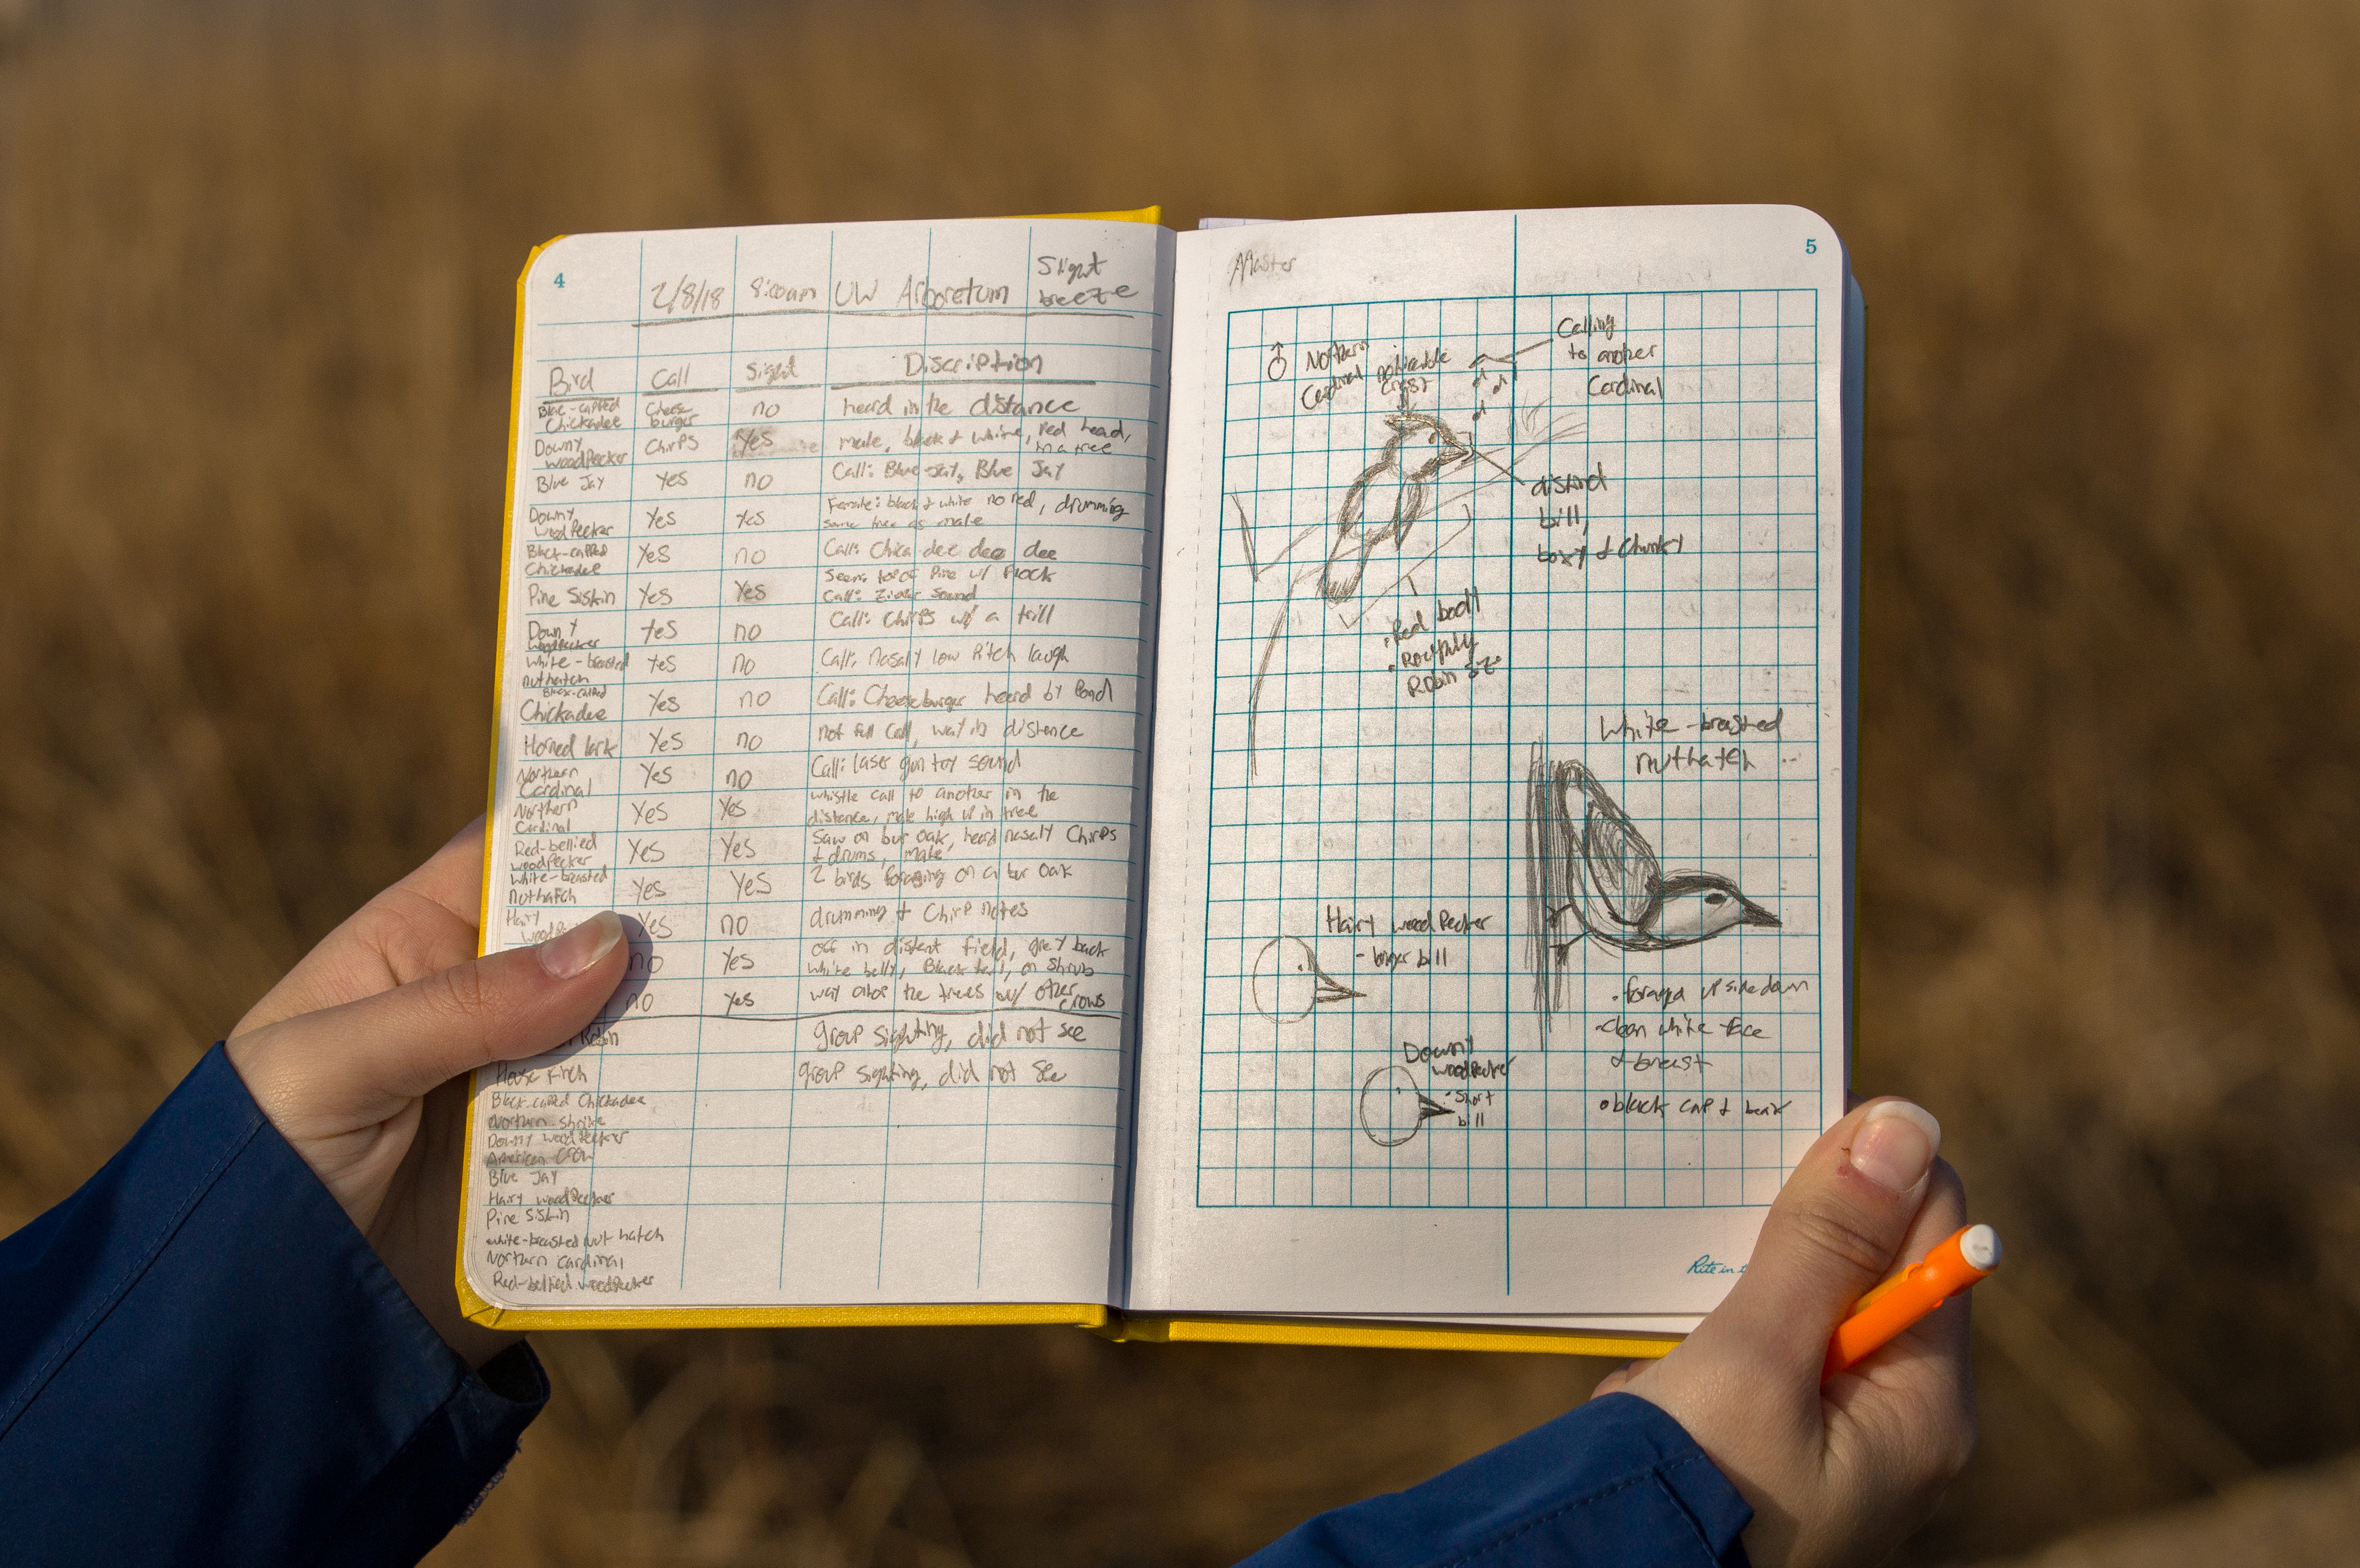 4
2/8/18 8:00am UW Arboretum Slight breeze
Bird Call Sight Discription
Black-capped Chickadee Cheese burger no heard in the distance
Downy woodpecker Chirps Yes male, black & white, red head, in a tree
Blue Jay Yes no Call: Blue-Jay, Blue Jay
Downy woodpecker Yes Yes Female: black & white no red, drumming same tree as male
Black-capped Chickadee Yes no Call: Chica dee dee dee
Pine Siskin Yes Yes Seen: top of Pine w/ Flock Call: sound
Downy woodpecker Yes no Call: Chirps w/ a trill
White-breasted nuthatch Yes no Call: nasaly low Pitch laugh
Black-capped Chickadee Yes no Call: Cheeseburger heard by Pond
Horned lark Yes no not full call, way in distance
Northern Cardinal Yes no Call: laser gun toy sound
Northern Cardinal Yes Yes whistle call to another in the distance, male high up in tree
Red-bellied woodpecker Yes Yes Saw on bur oak, heard nasaly Chirps & drums, male
White-breasted nuthatch Yes Yes 2 birds foraging on a bur oak
Hairy Yes no drumming & Chirp notes
no Yes off in distant field, grey back white belly, Black tail, on Shrub
no Yes way atop the trees w/ other crows
group sighting, did not see
House Finch group sighting, did not see
Black-capped Chickadee
Northurn shrike
Downy woodpecker
American Crow
Blue Jay
Hairy woodpecker
Pine Siskin
white-breasted nut hatch
Northurn cardinal
Red-bellied woodpecker
5
Master
♂ Northern Cardinal
noticeable crest
Calling
to another
Cardinal
distinct
bill,
boxy & Chunky
• Red body
• Roughly
Robin size
White-breasted
nuthatch
Hairy woodpecker
- bigger bill
Downy
woodpecker
- Short
bill
• foraged upside down
• clean white face
& breast
• black cap &
Rite in